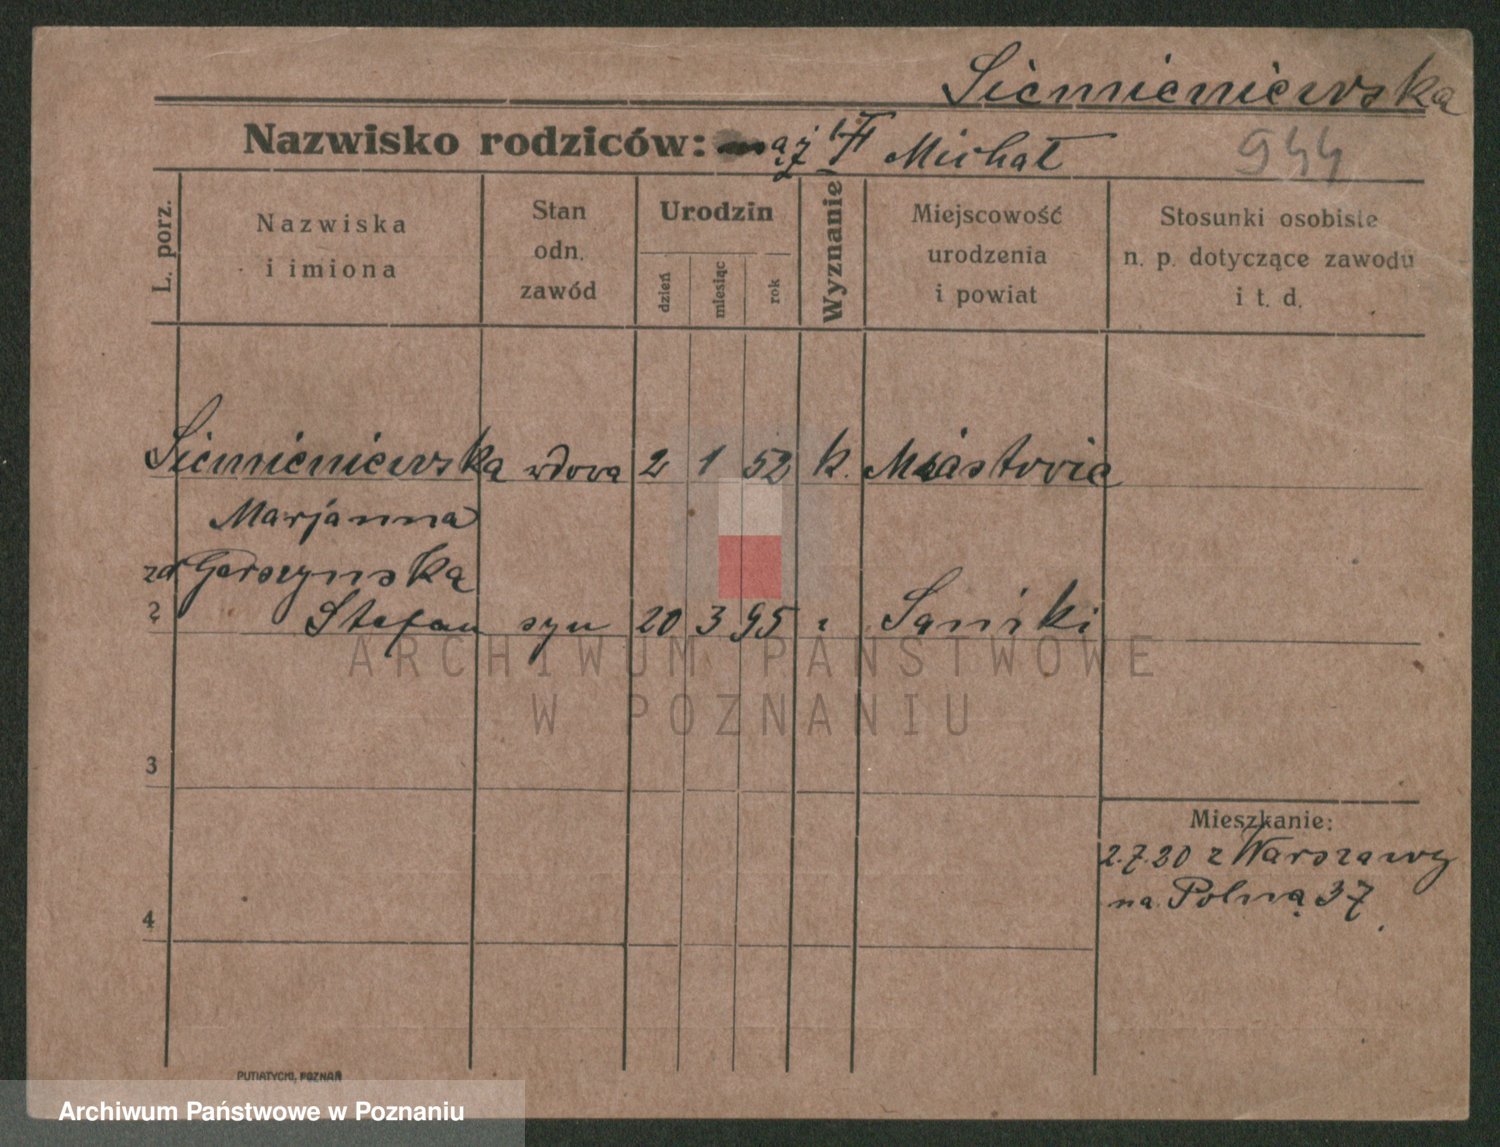 Siemieniewska
Nazwisko rodziców: mąż Michał
944
L. porz.
Nazwiska
i imiona
Stan
odn.
zawód
Urodzin
dzień
miesiąc
rok
Wyznanie
Miejscowość
urodzenia
i powiat
Stosunki osobiste
n. p. dotyczące zawodu
i t. d.
Siemieniewska wdova 2 1 52 k.
Marjanna
zd Gorszynska
2 Stefan syn 20 3 95
ARCHIWUM PAŃSTWOWE
W POZNANIU
3
Mieszkanie:
2.7.20 z Warszawy
na Polną 37
4
PUTIATYCKI, POZNAŃ
Archiwum Państwowe w Poznaniu